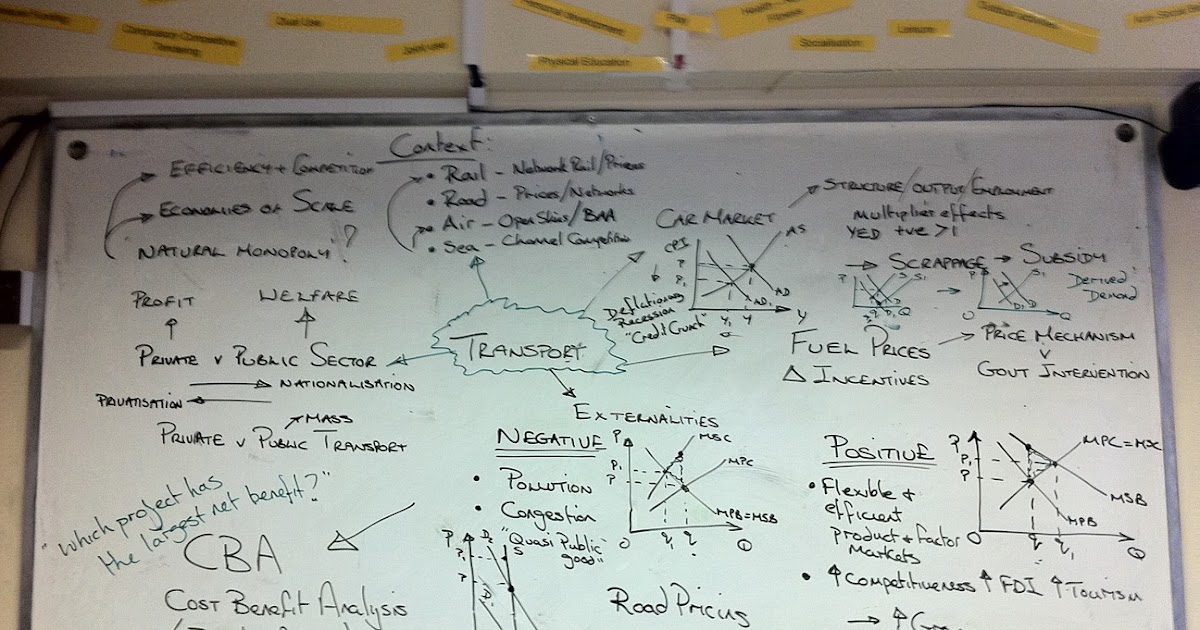 Dual Use
Compulsory Competitive
Tendering
Joint use
Personal development
Physical Education
Play
Health
Fitness
Socialisation
Leisure
Outdoor activities
Context:
EFFICIENCY + COMPETITION
ECONOMIES OF SCALE
'NATURAL MONOPOLY'?
• Rail - Network Rail/Prices
• Road - Prices/Networks
• Air - Open Skies/BAA
• Sea - Channel Competition
CAR MARKET
STRUCTURE/OUTPUT/EMPLOYMENT
Multiplier effects
YED +ve >1
SCRAPPAGE → SUBSIDY
Derived
Demand
CPI
P
P1
AS
AD
AD1
Y1 Y
Y
Deflationary
Recession
"Credit Crunch"
P
S
S1
D
Q
P
S1
D1
D
O
Q
PROFIT
WELFARE
PRIVATE v PUBLIC SECTOR
NATIONALISATION
PRIVATISATION
MASS
PRIVATE v PUBLIC TRANSPORT
TRANSPORT
FUEL PRICES
△ INCENTIVES
PRICE MECHANISM
v
GOVT INTERVENTION
EXTERNALITIES
NEGATIVE
• POLLUTION
• Congestion
"Quasi Public
good"
P
P1
P
MSC
MPC
MPB=MSB
O
q1 q
Q
POSITIVE
• Flexible +
efficient
product + factor
Markets
• ↑ Competitiveness ↑ FDI ↑ Tourism
→ ↑
P
P1
P
MPC=MSC
MSB
MPB
O
q q1
Q
"Which project has
the largest net benefit?"
CBA
COST BENEFIT ANALYSIS
P
P1
P
D2
S
D1
Road Pricing